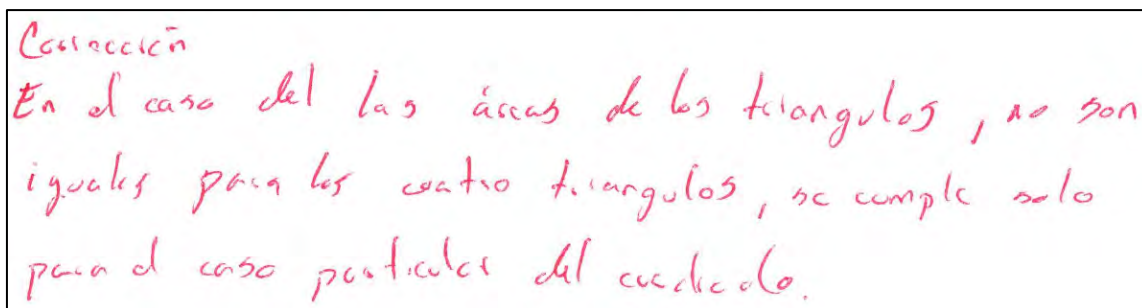 Corrección
En el caso del las áreas de los triangulos, no son
iguales para los cuatro triangulos, se cumple solo
para el caso particular del cuadrado.